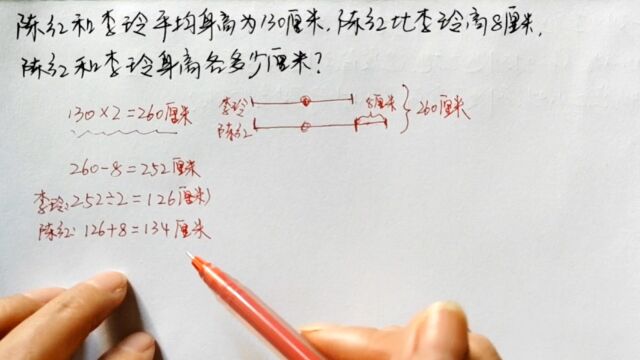 陈红和李玲平均身高为130厘米,陈红比李玲高8厘米,
陈红和李玲身高各多少厘米?
130×2=260厘米
李玲
8厘米
陈红
260厘米
260-8=252厘米
李玲:252÷2=126(厘米)
陈红:126+8=134厘米